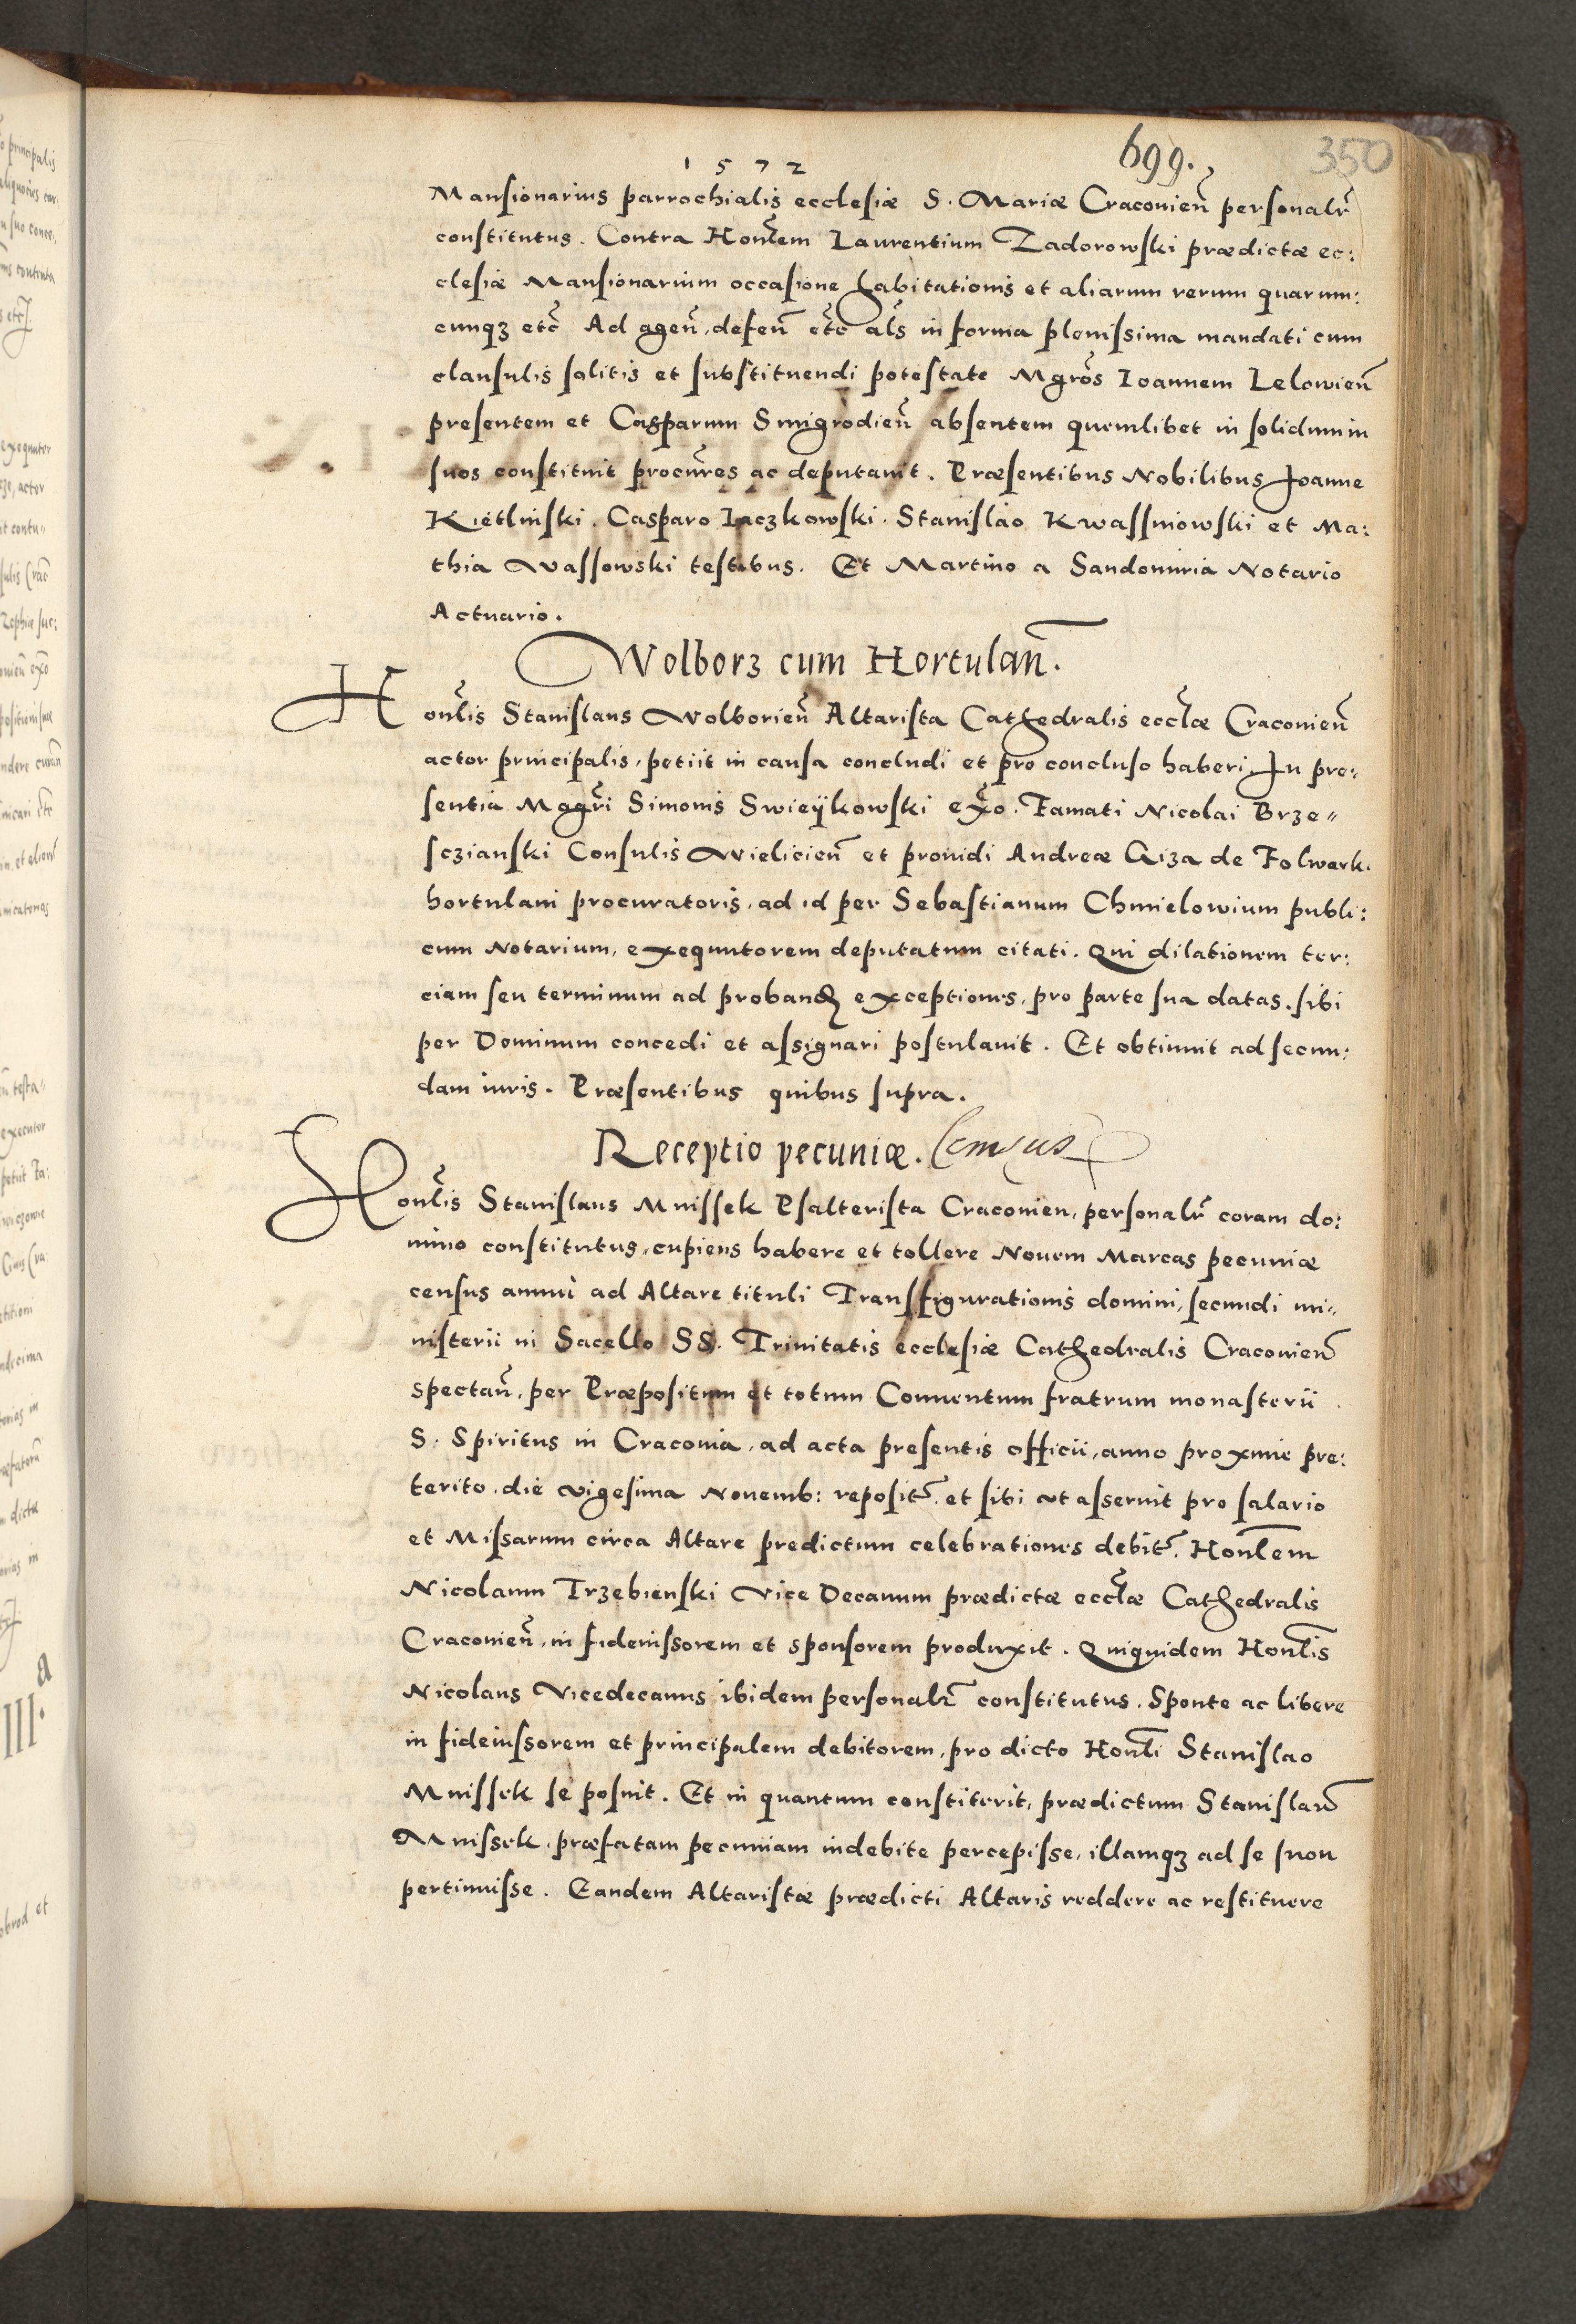 1572
699.
350
Mansionarius parrochialis ecclesiæ S. Mariæ Craconień personalr̃
constitutus. Contra Honl̃em Laurentium Zadorowski prædictæ ec:
clesiæ Mansionarium occasione habitationis et aliarum rerum quarum:
cunqꝫ etc̃ Ad ageñ, defeñ etc̃ al̃s in forma plenissima mandati cum
clausulis solitis et substituendi potestate Mgr̃os Ioannem Lelowień
presentem et Casparum Smigrodień absentem quemlibet in solidum in
suos constituit procur̃es ac deputauit. Præsentibus Nobilibus Joanne
Kietlinski. Casparo Iaczkowski. Stanislao Kwassniowski et Ma:
thia Wassowski testibus. Et Martino a Sandomiria Notario
Actuario.
Wolborz cum Hortulañ.
Honl̃is Stanislaus Wolborień Altarista Cathedralis eccl̃æ Craconień
actor principalis, petiit in causa concludi et pro concluso haberi, In pre:
sentia Magr̃i Simonis Swieÿkowski ex̃o. Famati Nicolai Brze〃
sczianski Consulis Wielicień et prouidi Andreæ Giza de Folwark.
hortulani procuratoris, ad id per Sebastianum Chmielowium publi:
cum Notarium, exequutorem deputatum citati. Qui dilationem ter:
ciam seu terminum ad proband exceptiones, pro parte sua datas. sibi
per Dominum concedi et assignari postulauit. Et obtinuit ad secun:
dam iuris. Præsentibus quibus supra.
Receptio pecuniæ. Census
Honl̃is Stanislaus Mnissek Psalterista Craconien, personalr̃ coram do:
mino constitutus, cupiens habere et tollere Nouem Marcas pecuniæ
census annui ad Altare tituli Transfigurationis domini, secundi mi〃
nisterii in Sacello SS. Trinitatis ecclesiæ Cathedralis Craconień
spectañ, per Præpositum et totum Conuentum fratrum monasterii
S. Spiritus in Craconia, ad acta presentis officii, anno proxime pre:
terito, die vigesima Nouemb: reposit̃. et sibi vt asseruit pro salario
et Missarum circa Altare predictum celebrationes debit̃. Honl̃em
Nicolaum Trzebienski Vice Decanum prædictæ eccl̃æ Cathedralis
Craconień, in fideiussorem et sponsorem produxit. Quiquidem Honl̃is
Nicolaus Vicedecanus ibidem personalr̃ constitutus. Sponte ac libere
in fideiussorem et principalem debitorem, pro dicto Honl̃i Stanislao
Mnissek se posuit. Et in quantum constiterit, prædictum Stanislaũ
Mnissek, præfatam pecuniam indebite percepisse, illamqꝫ ad se non
pertinuisse. Eandem Altaristæ prædicti Altaris reddere ac restituere